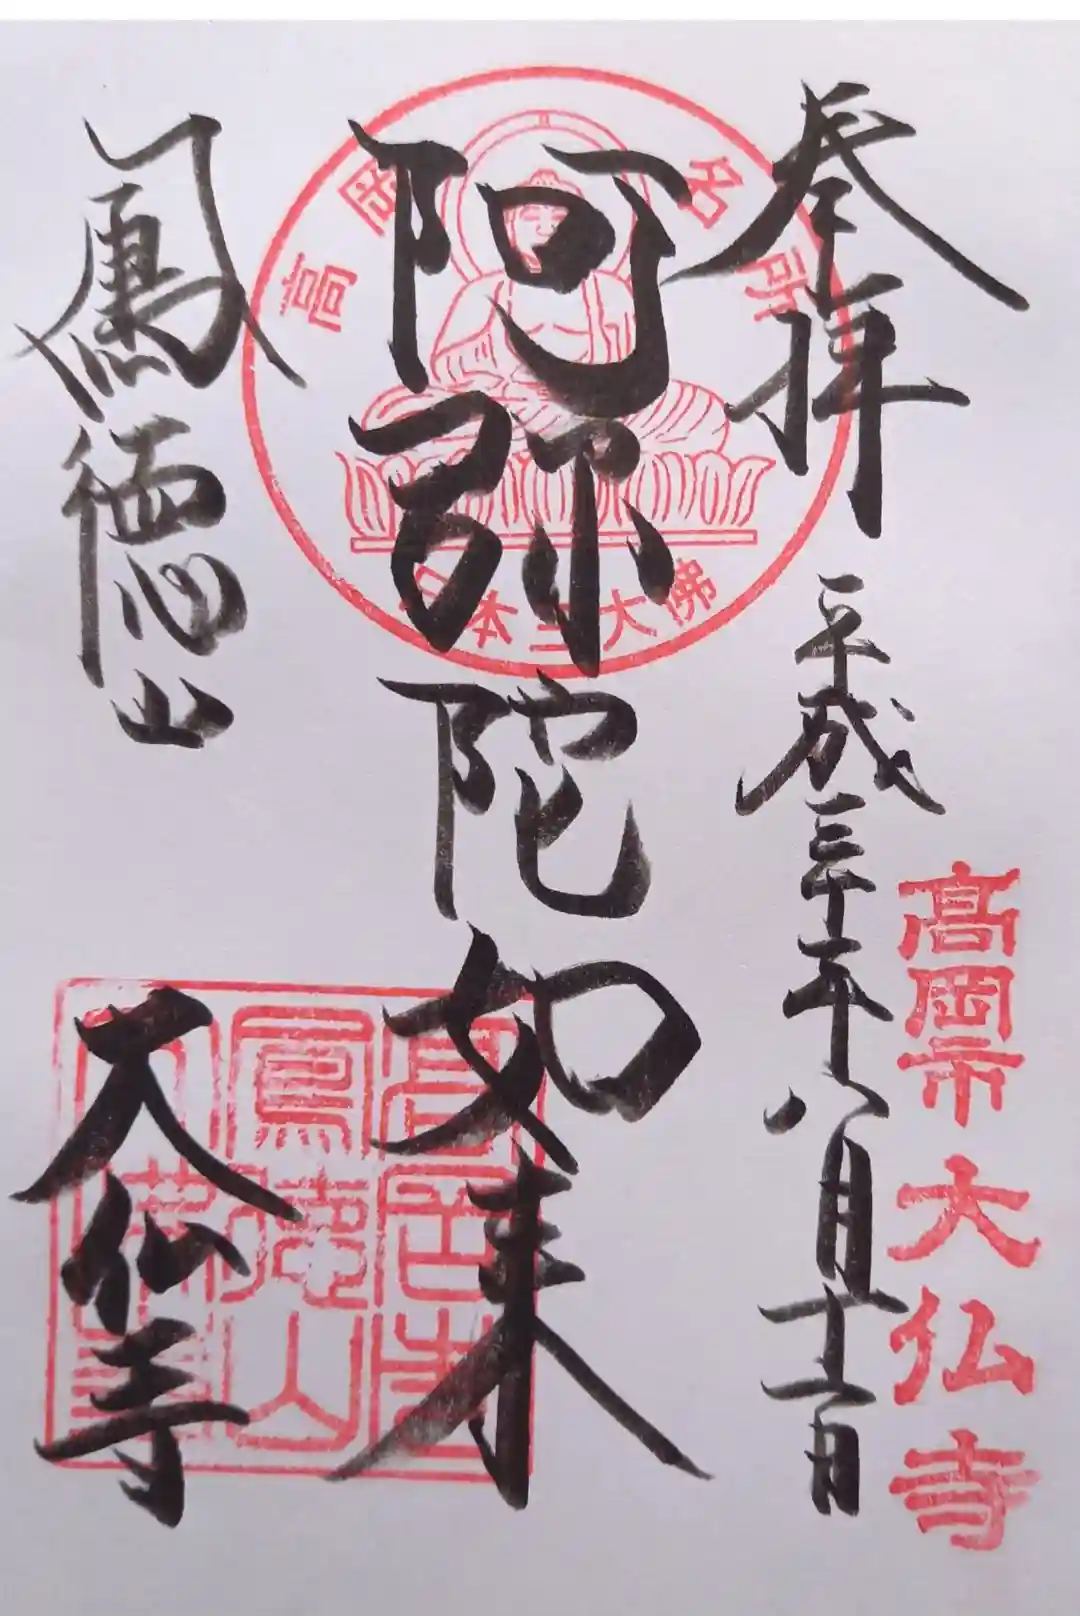 奉拝
平成三十年八月十二日
高岡市大仏寺
阿弥陀如来
高岡名所
日本三大佛
鳳徳山
大仏寺
高岡市
鳳徳山
大佛寺